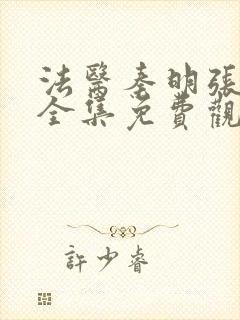 法醫秦明張
全集免費觀
許少睿